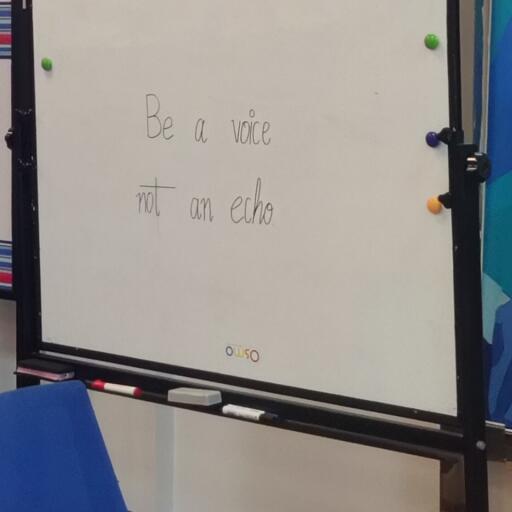 Be a voice
not an echo
owso